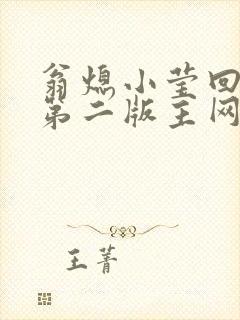 翁熄小莹回
第二版主网
王菁